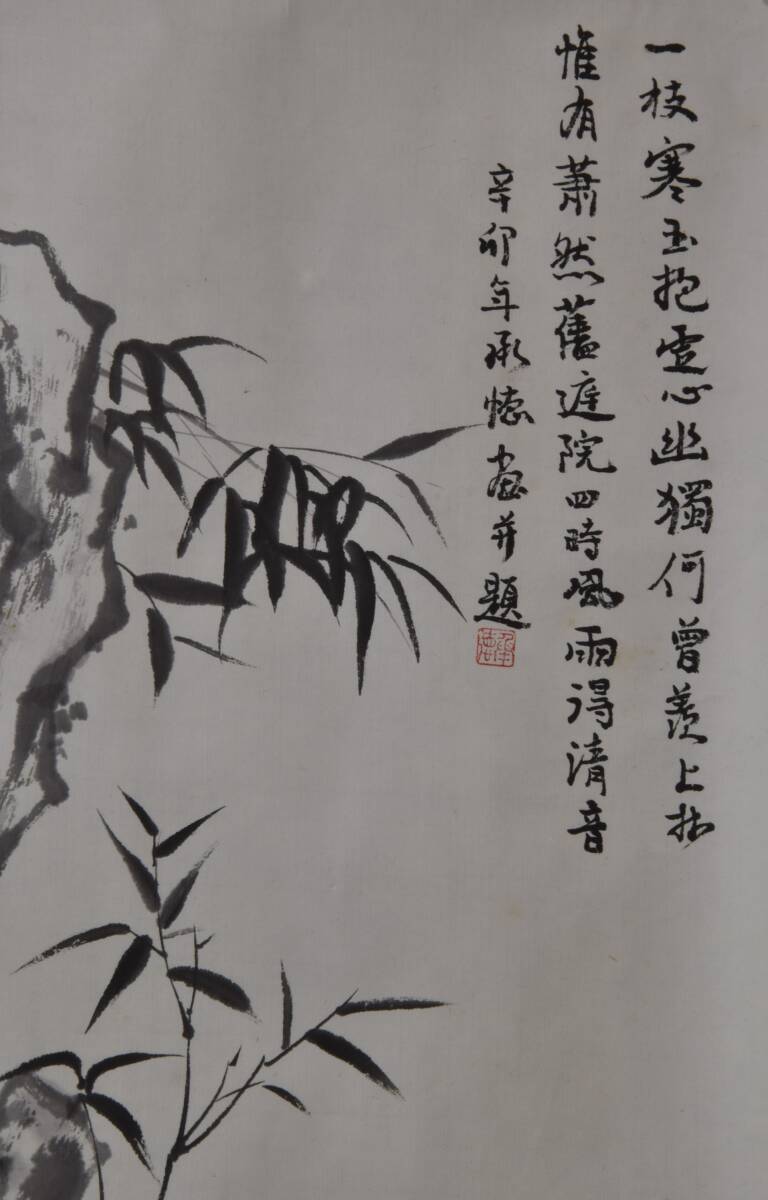 一枝寒玉抱虚心幽獨何曾羨上林
惟有蕭然舊庭院四時風雨得清音
辛卯年承懖畫并題